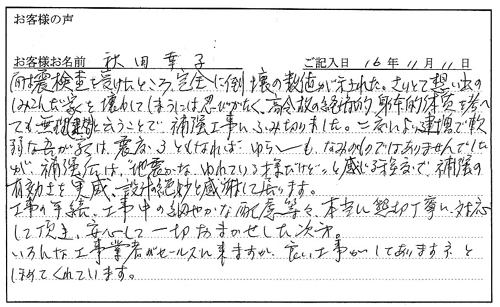 お客様の声
お客様お名前 秋田幸子 ご記入日 16年11月11日
耐震検査を受けたところ、完全に倒壊の数値が示された。さりとて想い出の
しみこんだ家を壊わしてしまうには忍びがたく、高令故の経済的
ても無理と云うことで、補強工事にふみきりました。
弱な吾が家は、震度3ともなれば、ゆらぎも、なみのものではありませんでした
が、補強后は、地震かな、ゆれている様だけど、と感じる程度で、補強の
有効さを実感、設計の絶妙と感謝して居ります。
工事の手続、工事中の細やかな配慮等々、本当に懇切丁寧に対応
して頂き、安心して一切おまかせした次第。
いろんな工事業者がセールスに来ますが、良い工事がしてありますネと
ほめてくれています。